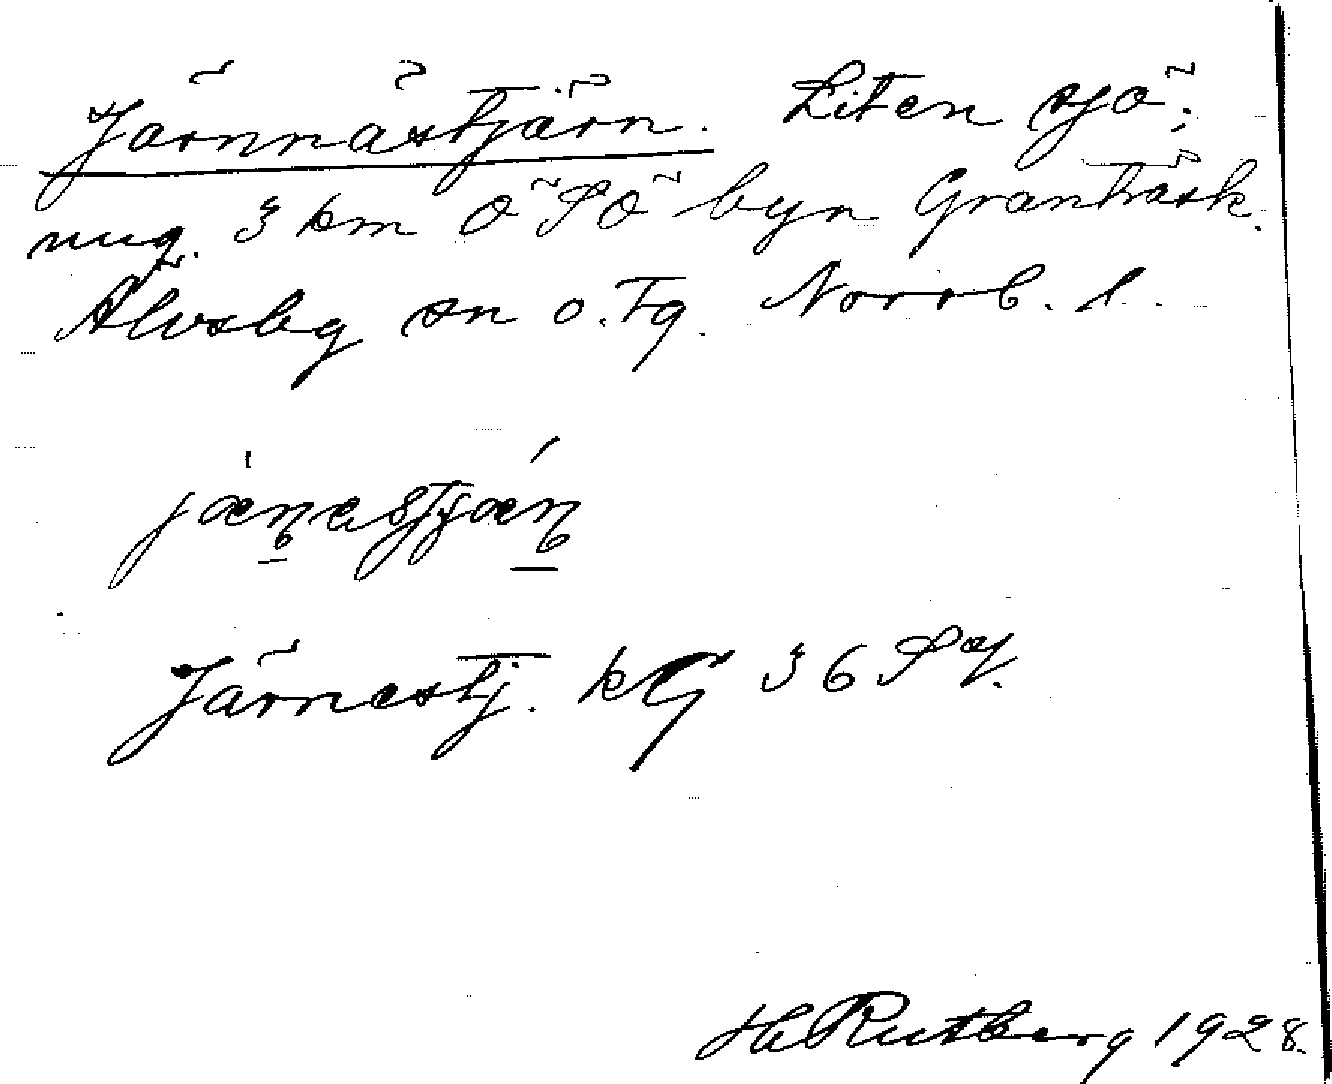 Järnnästjärn. Liten sjö;
ung. 3 km ÖSÖ byn Granträsk.
Älvsby sn o. tg. Norrb. l.
jæṇɐstjæṇ
Järnestj. kG 36 SV.
H Rutberg 1928.